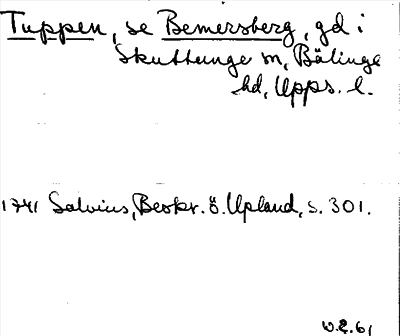 Tuppen, se Bemersberg, gd i
Skuttunge sn, Bälinge
hd, Upps. l.
1741 Salvius, Beskr. ö. Upland, s. 301.
61